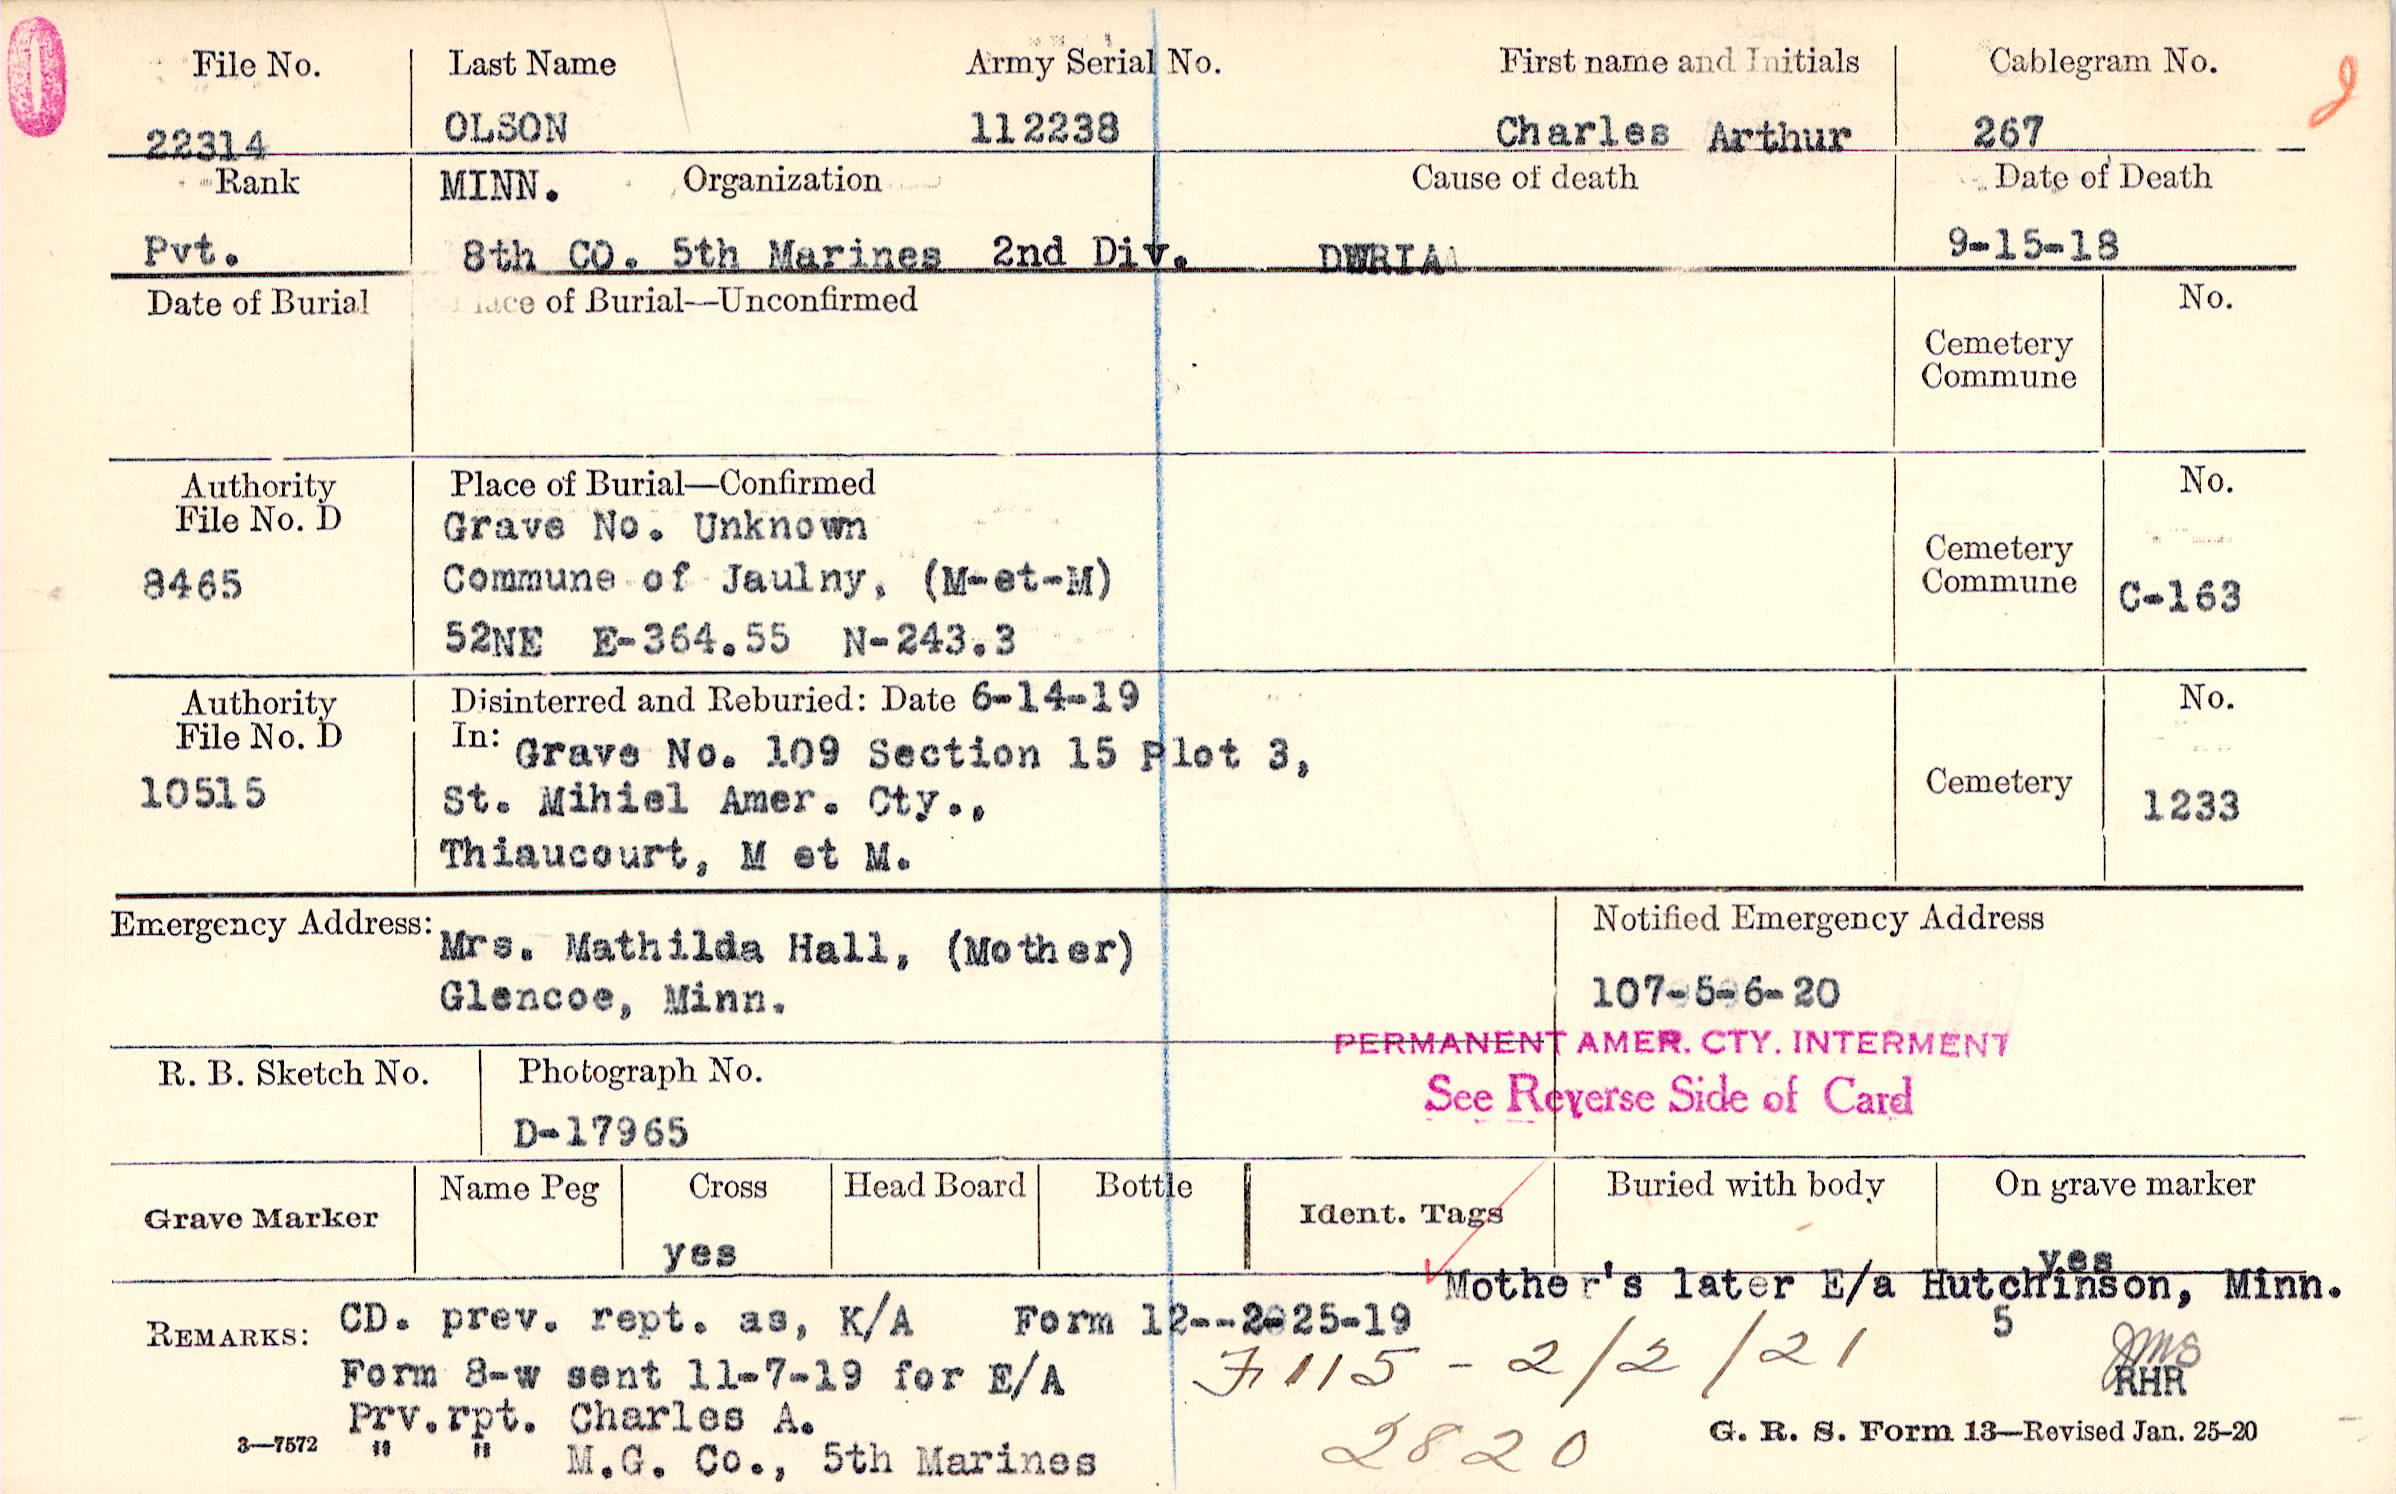 File No. Last Name Army Serial No. First name and Initials Cablegram No.
22314 OLSON 112238 Charles Arthur 267
Rank MINN. Organization Cause of death Date of Death
Pvt. 8th CO. 5th Marines 2nd Div. DWRIA 9-15-18
Date of Burial Place of Burial—Unconfirmed No.
Cemetery
Commune
Authority Place of Burial—Confirmed No.
File No. D Grave No. Unknown
Cemetery
8465 Commune of Jaulny, (M-et-M) Commune C-163
52NE E-364.55 N-243.3
Authority Disinterred and Reburied: Date 6-14-19 No.
File No. D In: Grave No. 109 Section 15 Plot 3,
10515 St. Mihiel Amer. Cty., Cemetery 1233
Thiaucourt, M et M.
Emergency Address: Mrs. Mathilda Hall, (Mother) Notified Emergency Address
Glencoe, Minn. 107-5-6-20
PERMANENT AMER. CTY. INTERMENT
R. B. Sketch No. Photograph No. See Reverse Side of Card
D-17965
Grave Marker Name Peg Cross Head Board Bottle Ident. Tags Buried with body On grave marker
yes yes
Mother's later E/a Hutchinson, Minn.
REMARKS: CD. prev. rept. as, K/A Form 12--2-25-19 5
Form 8-w sent 11-7-19 for E/A F115 - 2/2/21 JMS
RHR
Prv.rpt. Charles A.
3—7572 " " M.G. Co., 5th Marines 2820 G. R. S. Form 13—Revised Jan. 25-20